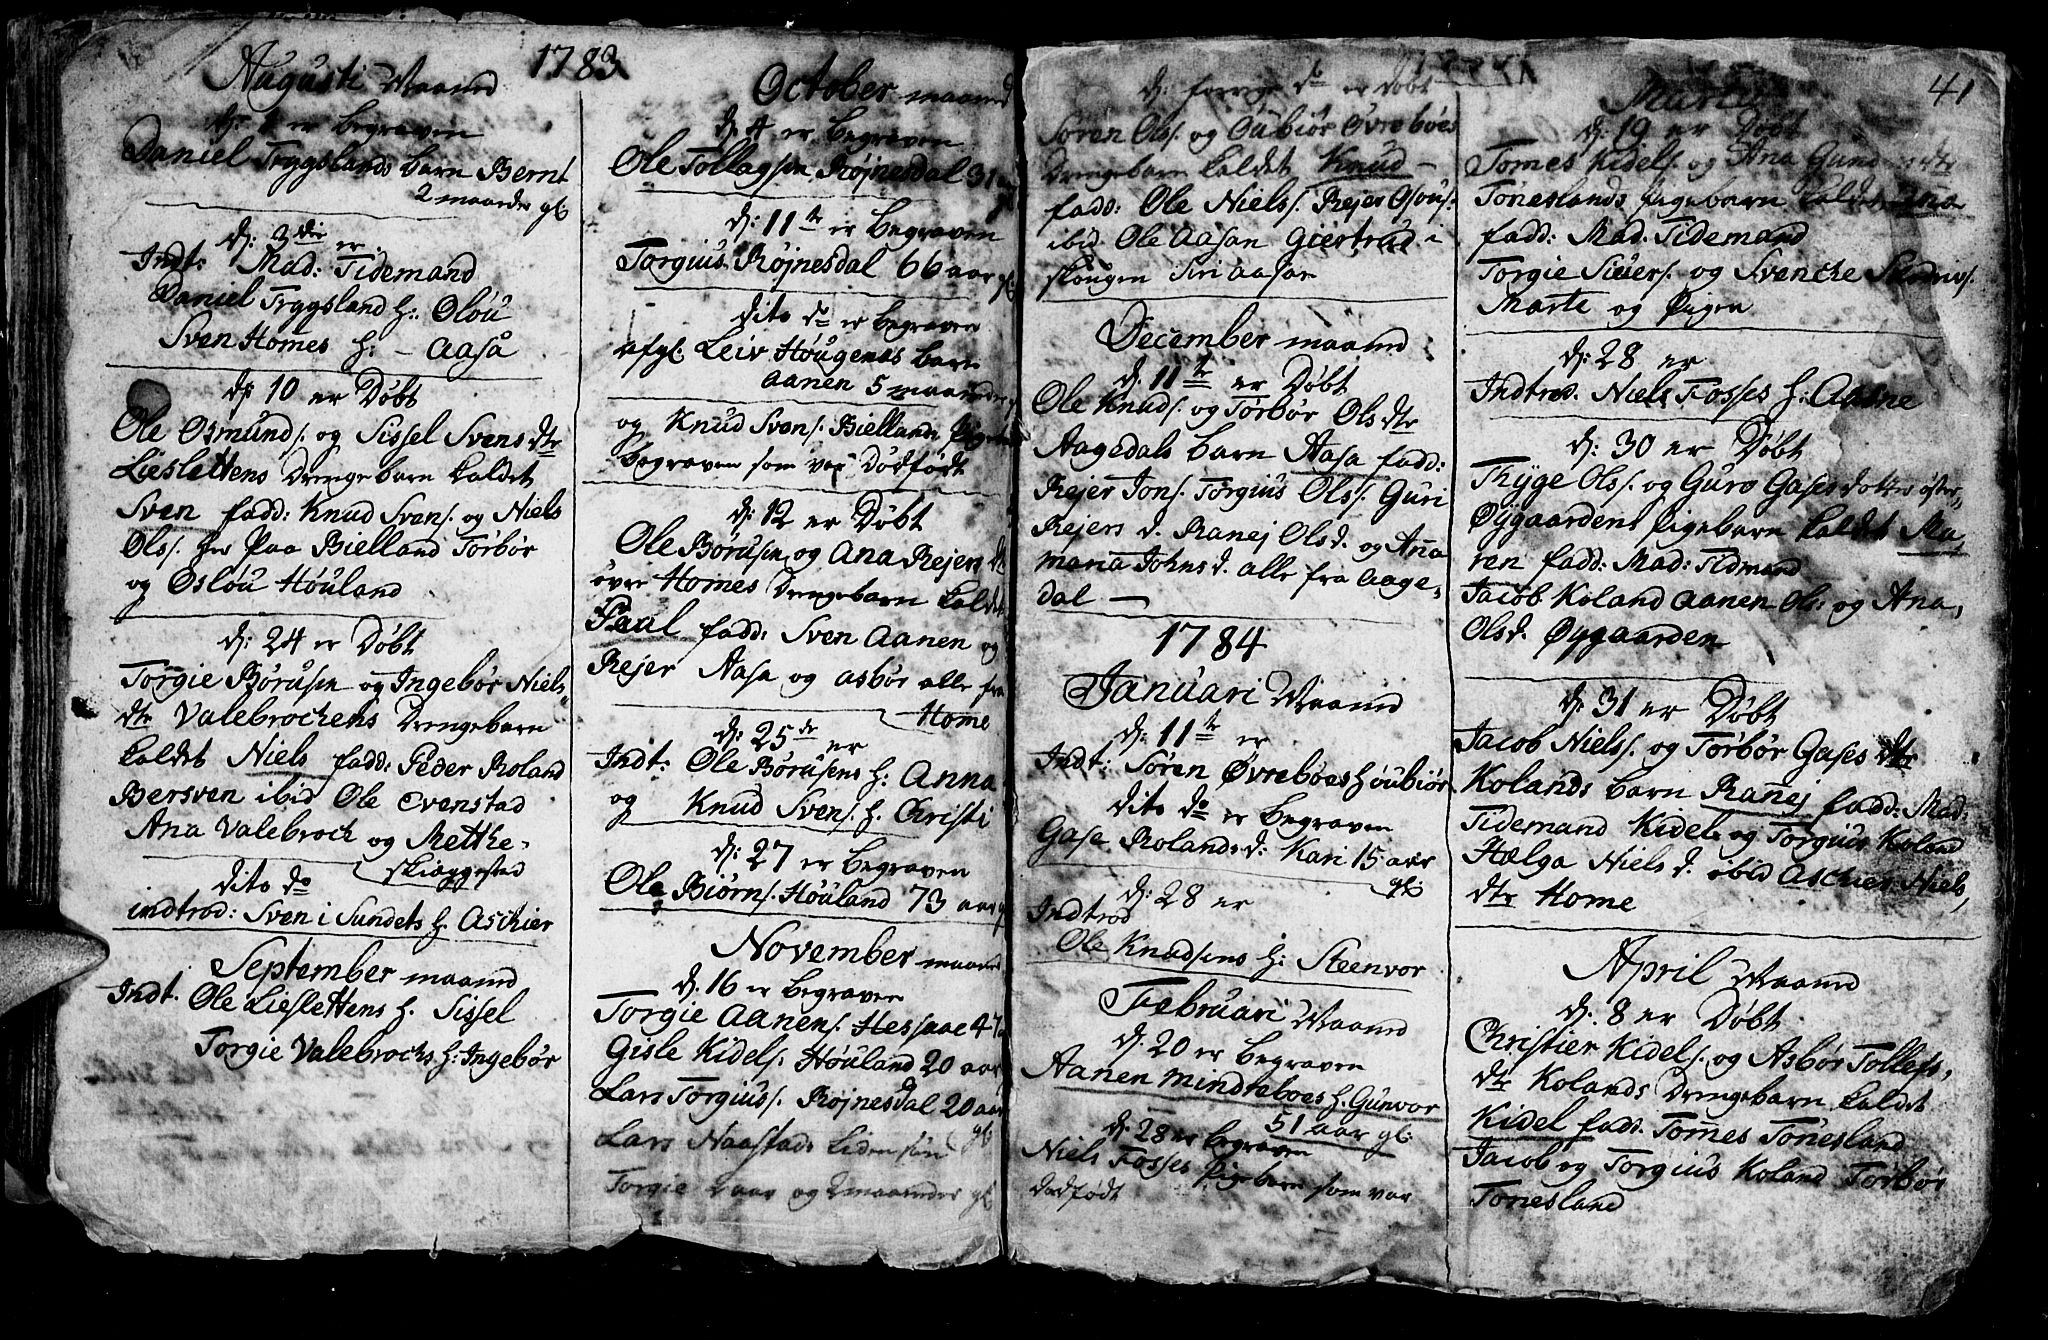 1783
Augusti Maaned
d: 1 er begraven
Daniel Tryggslands barn Bernt
2 maander gl:
d: 3die er
Indt: Mad: Tidemand
Daniel Tryggsland h: Olöu
Sven Homes h: - Aaså
d: 10 er Døbt
Ole Osmunds. og Sissel Svens dtr
Lieslettens Drengebarn kaldet
Sven fadd: Knud Svens. og Niels
Ols. Paa Bielland Torbör
og Oslöu Höuland
d: 24 er Døbt
Torgie Börusen og Ingebör Niels
dtr Valebrochens Drengebarn
kaldet Niels fadd: Peder Roland
Bersven ibid Ole Evenstad
Ana Valebroch og Mette
Skiæggestad
dito do
indtrod: Sven i Sundets h. Aschier
September maaned
Indt. Ole Lieslettens h. Sissel
Torgie Valebrochs h: Ingebör
October maaned
d: 4 er Begraven
Ole Tollagsen Röjnesdal 31
d: 11te er Begraven
Torgius Röjnesdal 66 aar gl.
dito do er begraven
afgl. Leiv Höugenes barn
Aanen 5 maander
og Knud Svens. Biellands
begraven som var Dödfödt
d: 12 er Døbt
Ole Börusen og Ana Rejers
övre Homes Drengebarn kaldet
Paal fadd: Sven Aanen og
Rejer Aasa og Asbör alle fra
Home
d: 25de er
Indt: Ole Börusens h: Anna
og Knud Svens. h. Christi
d: 27 er Begraven
Ole Biörns. Höuland 73 aar
November maaned
d. 16 er begraven
Torgie Aanens. Hessaae 47
Gisle Kidels: Höuland 20 aar
Lars Torgius. Röjnesdal 20 aar
gl:
Lars Naastads liden sön
Torgie 2 aar og 2 maaneder gl.
41
d: forrige do er Døbt
Sören Ols. og Gubiör Övreböes
Drengebarn kaldet Knud -
fadd: Ole Niels. Rejer
ibid Ole Aasan Giertrud i
skougen Siri Aasan
December maaned
d. 11te er Døbt
Ole Knuds. og Torbör Ols dtr
Aagedals barn Aasa fadd:
Rejer Jons. Torgius Ols. Guri
Rejers d. Ranej Ols d. og Ana
maria Johns d. alle fra Aage,
dal -
1784
Januari Maaned
d. 11te er
Indt: Sören Övreböes h Gubiör
dito do er Begraven
Gase Rolands d: Kari 15 aar
gl:
d: 28 er
Indtrod
Ole Knudsens h: Steenvor
Februari Maaned
d. 20 er begraven
Aanen Mindreboes h. Gunvor
51 aar gl:
d: 28 er begraven
Niels Fosses Pigebarn som var
dødfödt
Marti
d: 19 er Døbt
Tomes Kidels. og Ana
Toneslands Pigebarn kaldet Ana
fadd: Mad. Tidemand
Torgie Siurs. og Svenche
Marte og Pigen
d: 28 er
Indtrod. Niels Fosses h: Aasne
d: 30 er Døbt
Thyge Ols. og Guro Gases dotter öster,
Öygaardens Pigebarn kaldet Ma,
ren fadd: Mad: Tidmand
Jacob Koland Aanen Ols: og Ana,
Ols d. Öygaarden
d: 31 er Døbt
Jacob Niels. og Torbör Gases dtr
Kolands barn Ranej fadd: Mad:
Tidemand Kidel og Torgius Koland
Hælga Niels d. ibid Aschier Niels,
dtr Home
April Maaned
d: 8 er Døbt
Christier Kidels. og Asbör Tollefs,
dtr Kolands Drengebarn kaldet
Kidel fadd. Tomes Tonesland
Jacob og Torgius Koland Torbör
Tonesland